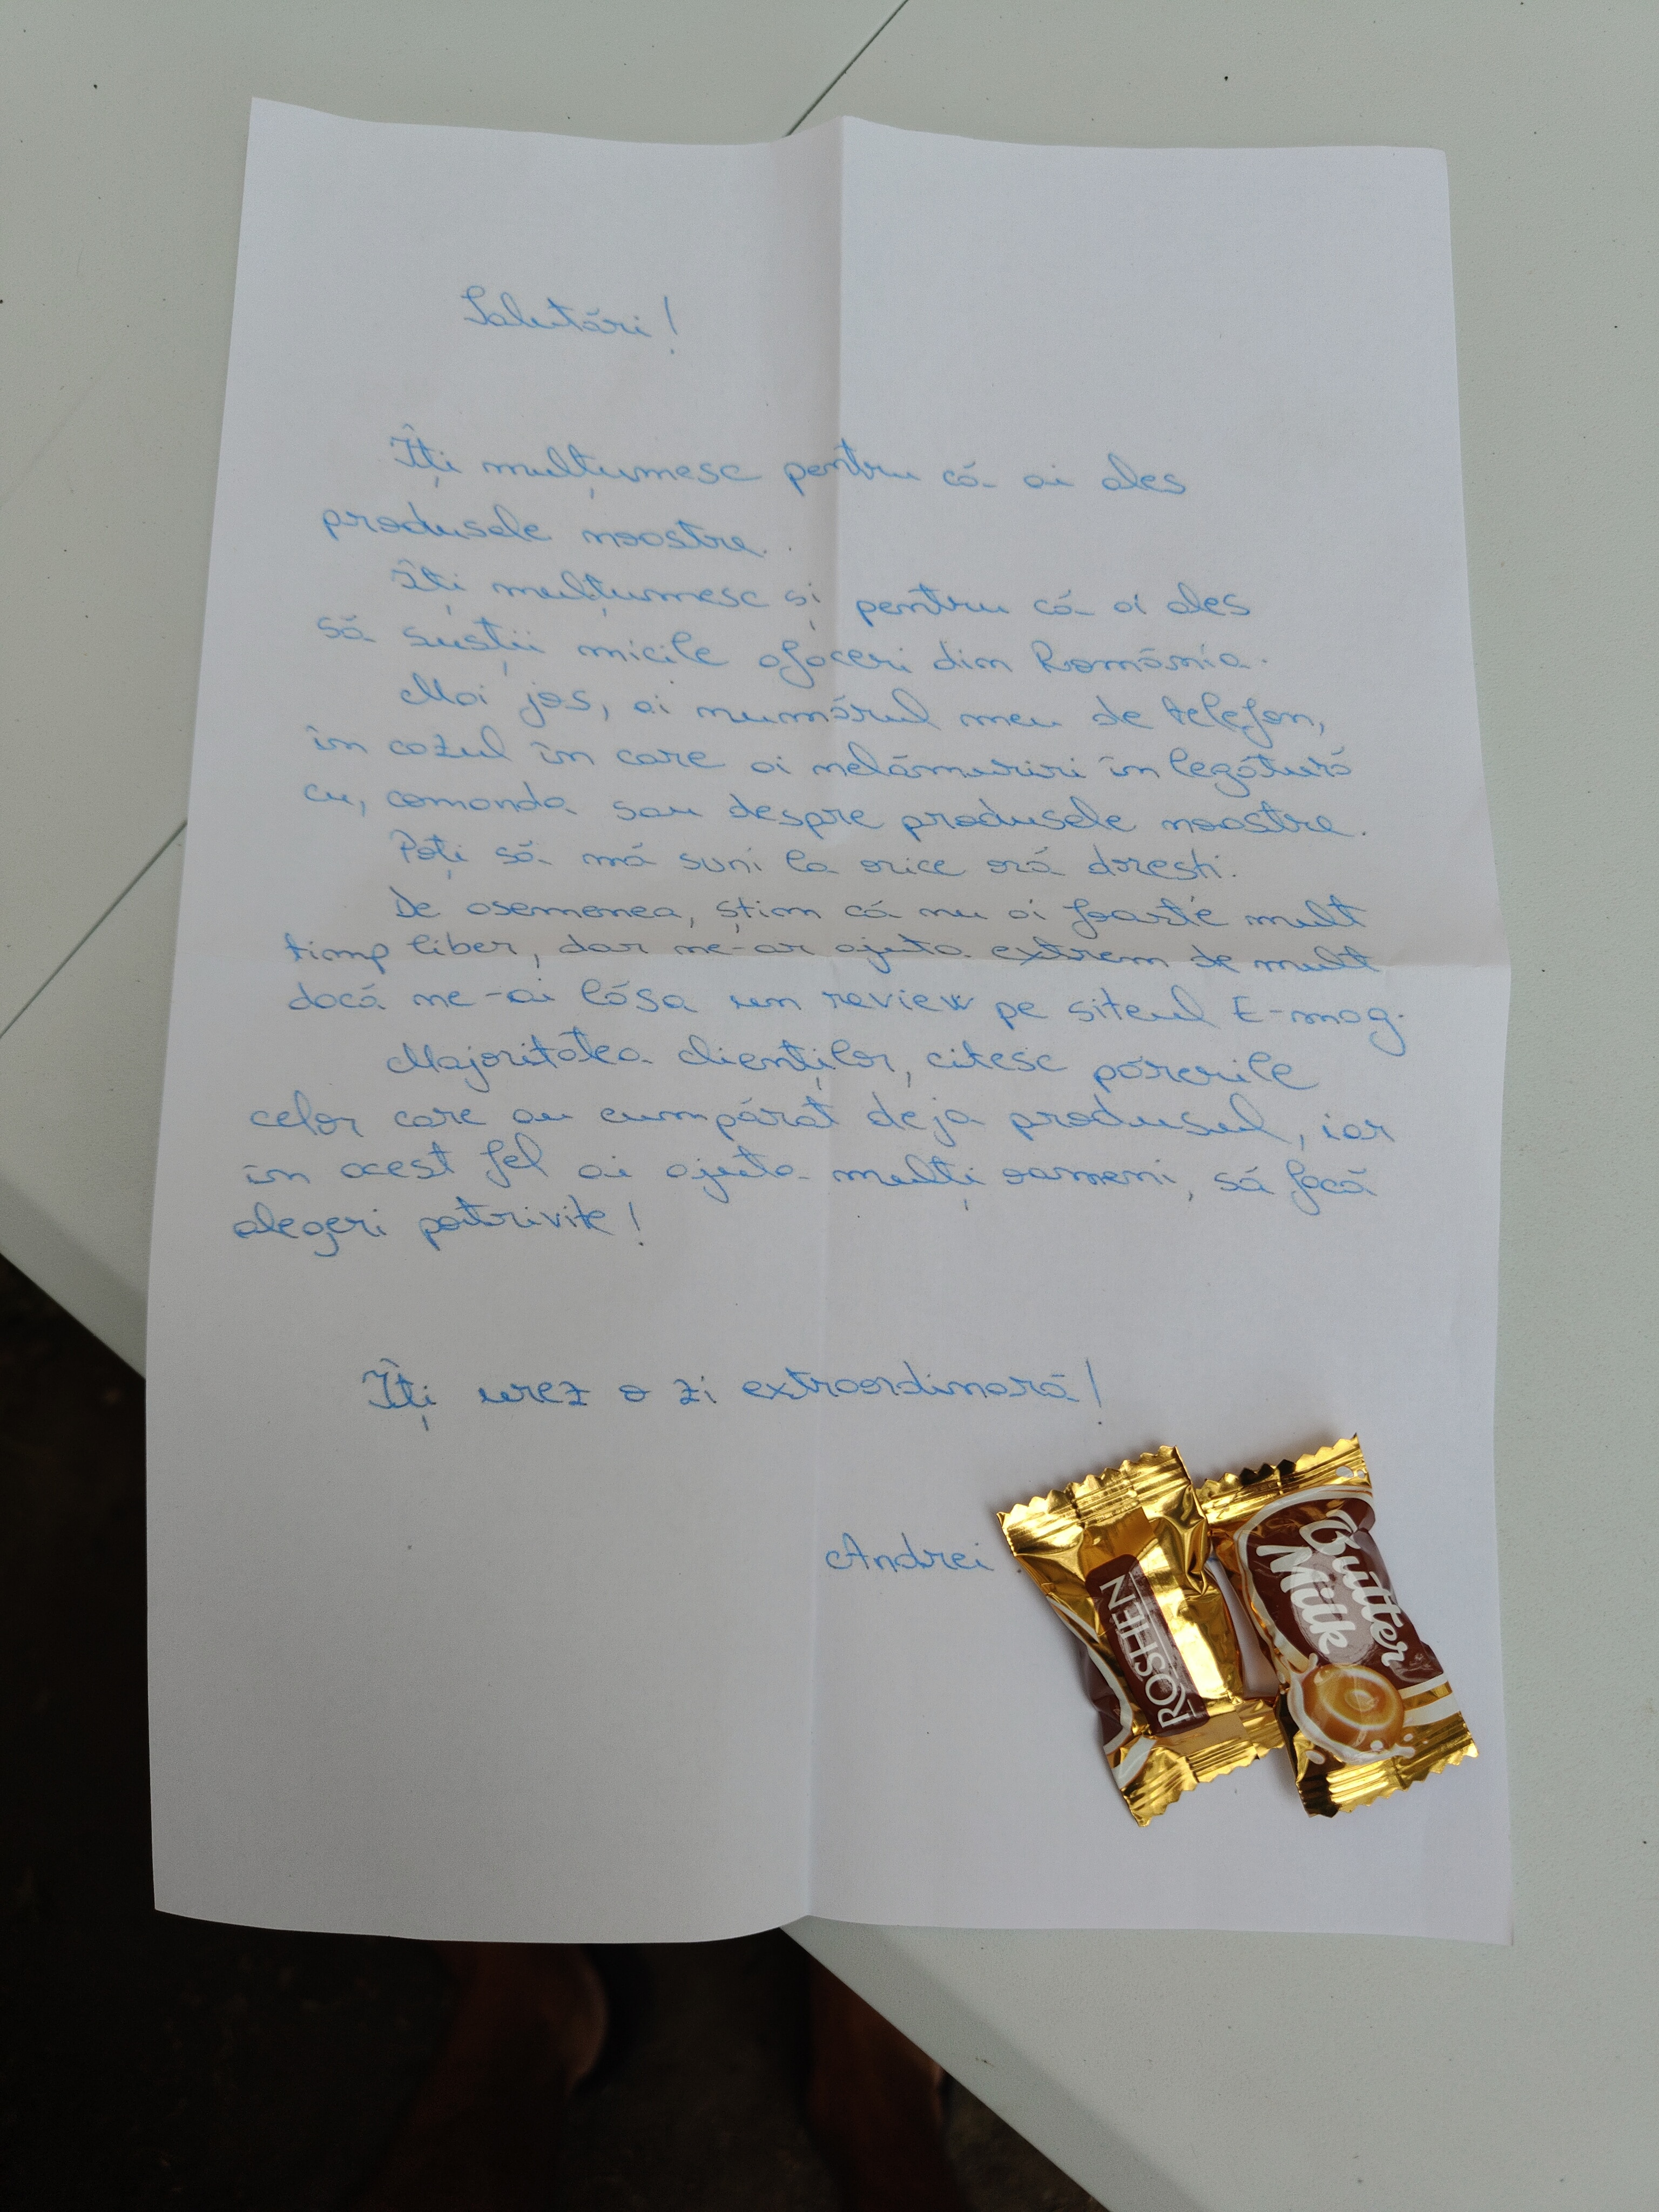 Salutări!
Îți mulțumesc pentru că ai ales
produsele noastre.
Îți mulțumesc și pentru că ai ales
să susții micile afaceri din România.
Mai jos, ai numărul meu de telefon,
în cazul în care ai nelămuriri în legătură
cu, comanda sau despre produsele noastre.
Poți să mă suni la orice oră dorești.
De asemenea, știm că nu ai foarte mult
timp liber, dar ne-ar ajuta extrem de mult
dacă ne-ai lăsa un review pe siteul E-mag.
Majoritatea clienților, citesc părerile
celor care au cumpărat deja produsul, iar
in acest fel ai ajuta mulți oameni, să facă
alegeri potrivite!
Îți urez o zi extraordinară!
Andrei
ROSHEN
Butter
Milk